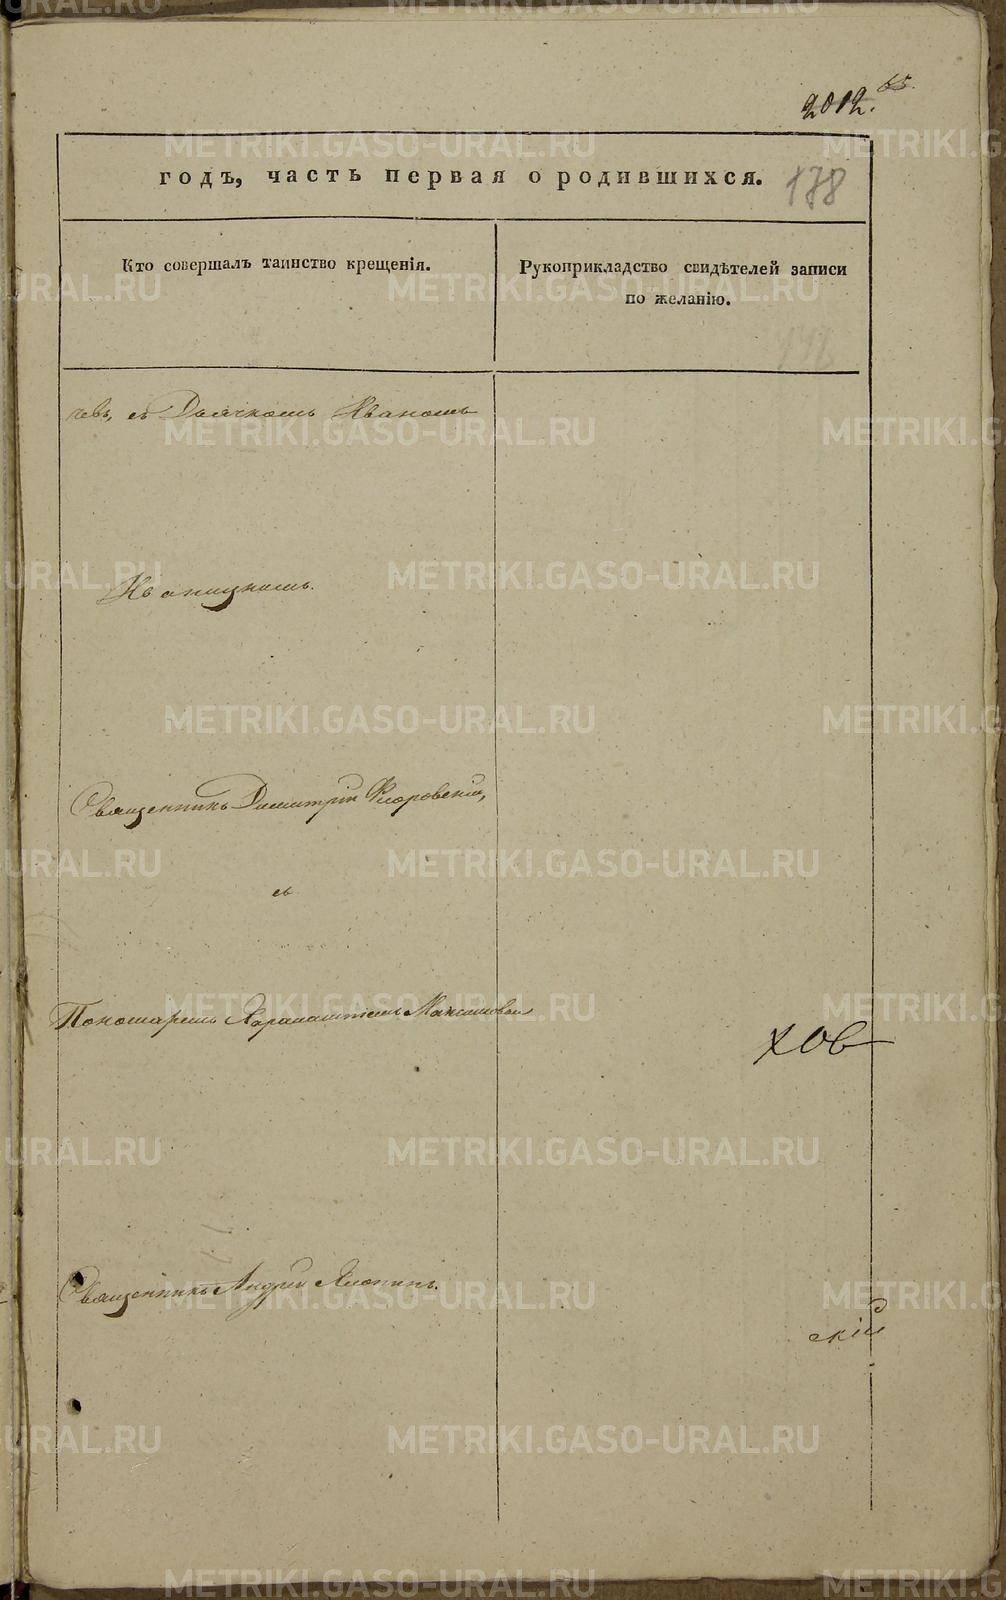 2012. 55.
годъ, часть первая о родившихся. 178
Кто совершалъ таинство крещенія.
Рукоприкладство свидѣтелей записи
по желанію.
чевъ, съ Дьячкомъ Иваномъ
Иваницкимъ.
Священникъ Димитрій Флоровскій,
съ
Пономаремъ Харалампіемъ Максимовым
хов
Священникъ Андрей
скій
METRIKI.GASO-URAL.RU